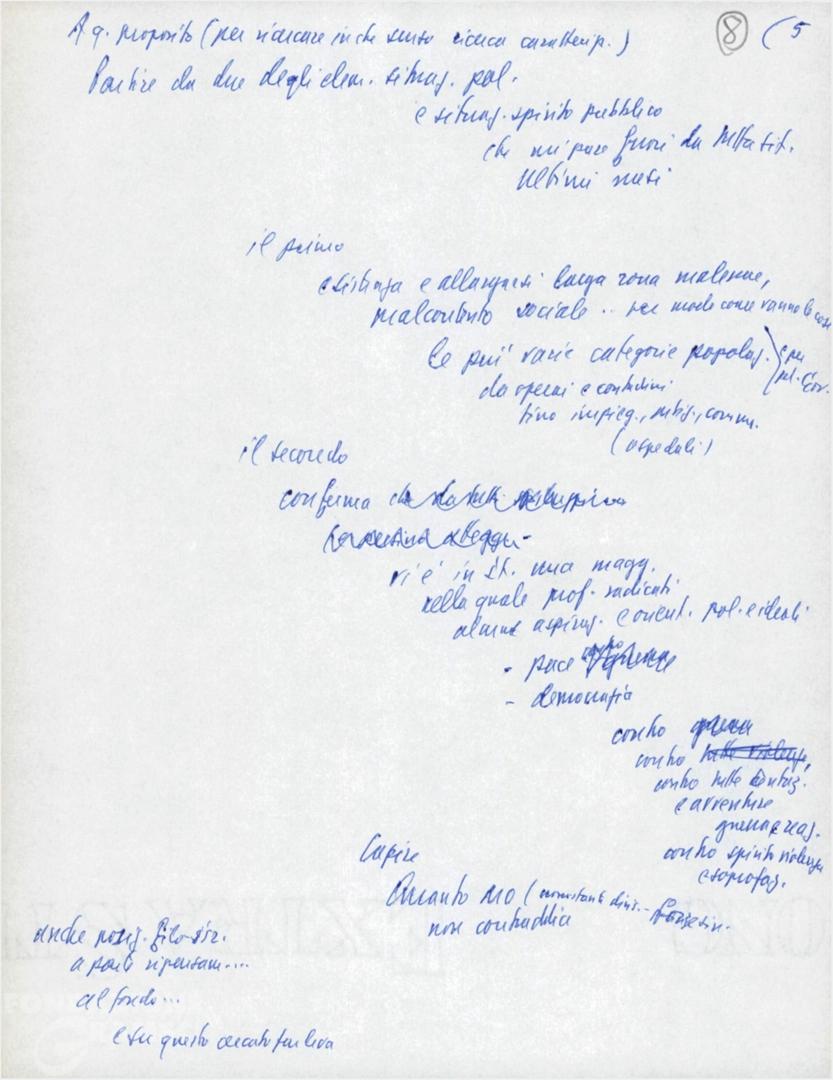 A q. proposito (per ricercare in che senso ricerca caratterip.) 8 (5
Partire da due degli elem. situaz. pol.
e situaz. spirito pubblico
che mi pare fuori da tutta sit.
ultimi mesi
il primo
esistenza e allargarsi larga zona malessere,
malcontento sociale .. per modo come vanno le cose
le più varie categorie popolaz. e per
da operai e contadini pol. Gov.
sino impieg., artig., comm.
(ospedali)
il secondo
conferma che
vi è in It. una magg.
nella quale prof. radicati
alcune aspiraz. e orient. pol. e ideali
- pace
- democrazia
contro guerra
contro tutte violenze,
contro tutte
e avventure
reaz.
contro spirito violenza
e sopraffaz.
Capire
Quanto MO (
non contraddica
anche posiz. filo-isr.
a parte ripensam....
al fondo...
e su questo cercato far leva